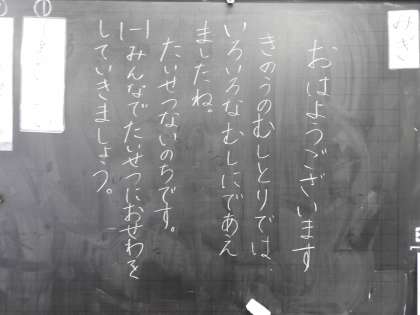 みぎ
おはようございます
きのうのむしとりでは、
いろいろなむしにであえ
ましたね。
たいせつないのちです。
1-1みんなでたいせつにおせわを
していきましょう。
①